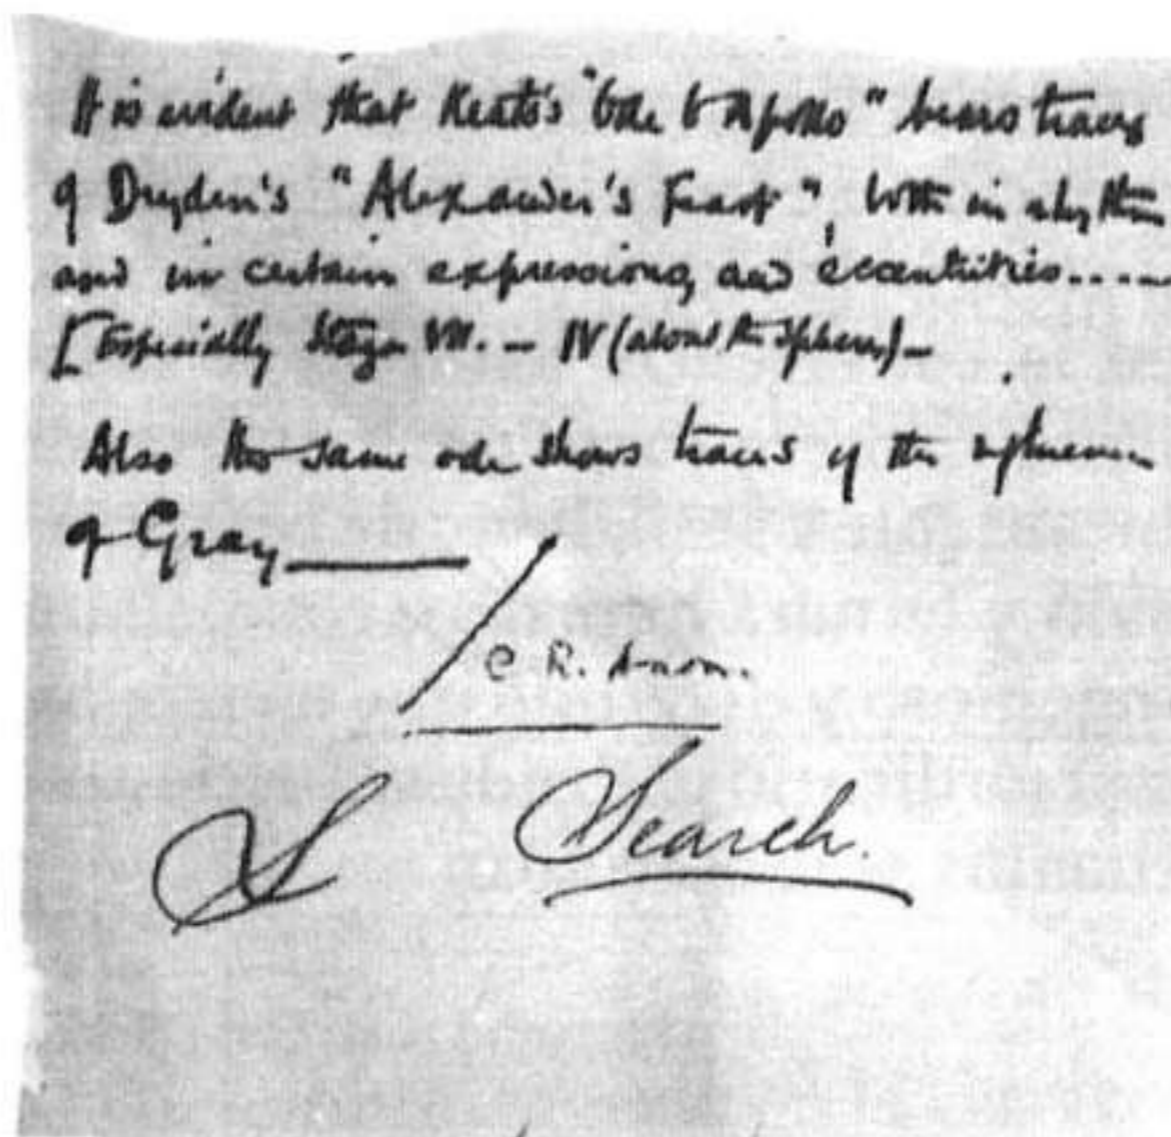 It is evident that Keats's "Ode to Apollo" bears traces
of Dryden's "Alexander's Feast", both in rhythm
and in certain expressions, and eccentricities....
[Especially Stanza VII. — IV (about the spheres) —
Also the same ode shows traces of the influence
of Gray
C R. Anon.
S Search.